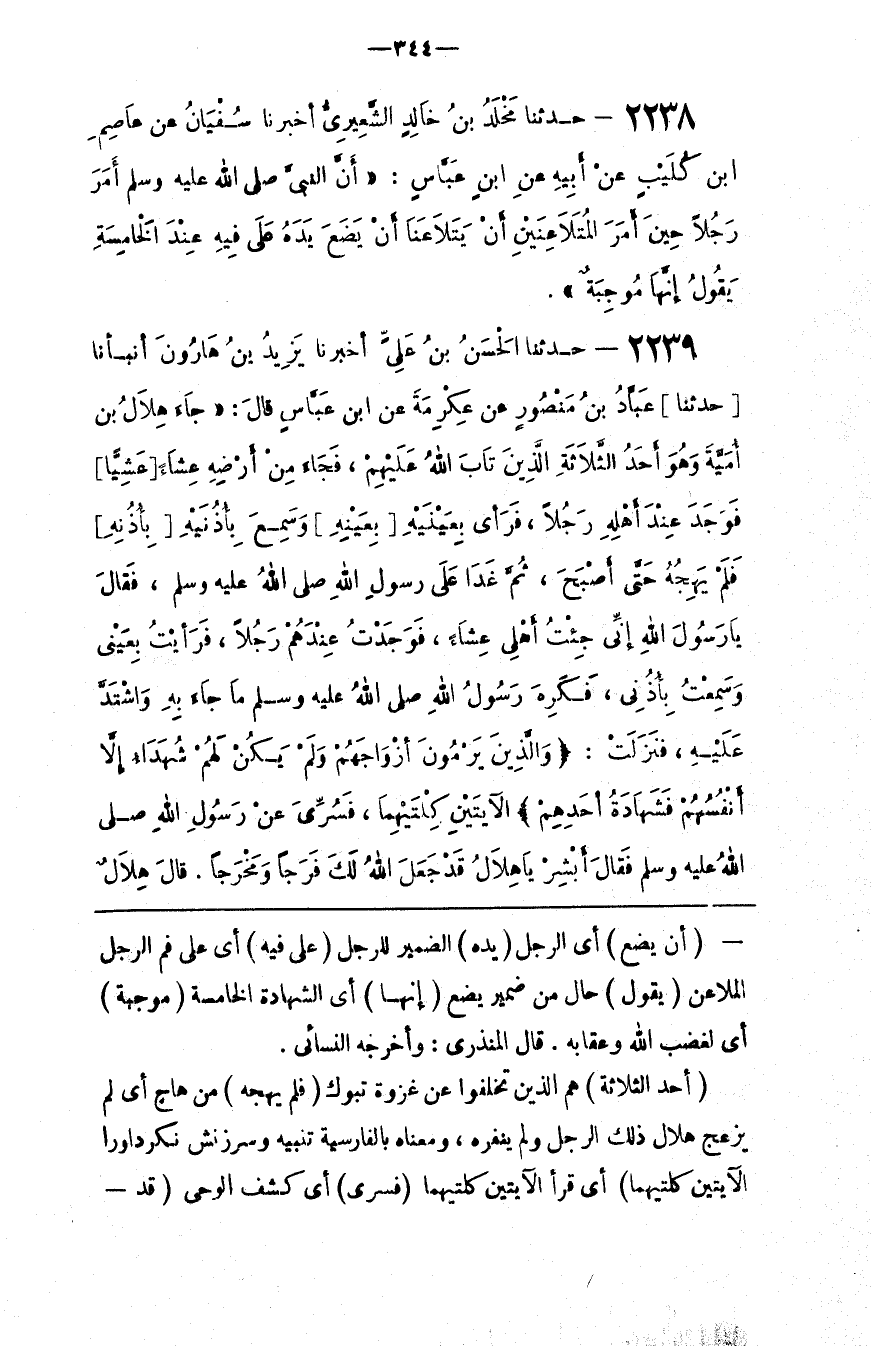 —٣٤٤—
٢٢٣٨ – حـدثنا مَخْلَدُ بنُ خاَلِدٍ الشَّعِيرِىُّ أخبرنا سُـفْيَانُ عن عاَصِمِ
ابن كُلَيْبٍ عنْ أَبيهِ عنِ ابنِ عَبَّاسٍ : « أَنَّ النبىَّ صلى اللهُ عليه وسلم أَمَرَ
رَجُلاً حِينَ أَمَرَ الُمتَلَاَعِنَيْنِ أَنْ يَتَلَاَعَنَا أَنْ يَضَعَ يَدَهُ عَلَى فِيهِ عِنْدَ الَخامِسَةِ
يَقُولُ إِنَّهاَ مُوجِبَةٌ » .
٢٢٣٩ – حـدثنا الَحْسَنُ بنُ عَلِىٍّ أخبرنا يَزِيدُ بنُ هَارُونَ أنبـأنا
[ حدثنا ] عَبَّادُ بنُ مَنْصُورٍ عن عِكْرِمَةَ عن ابن عَبَّاسٍ قالَ: « جاَء هِلاَلُ بن
أُمَيَّةَ وَهُوَ أَحَدُ الثَّلاَثَةِ الَّذِينَ تاَبَ اللهُ عَلَيْهِمْ ، فَجَاءَ مِنْ أَرْضِهِ عِشاَءً[عَشِيًّا]
فَوَجَدَ عِنْدَ أَهْلِهِ رَجُلاً ، فَرَأى بِعَيْنَيْهِ [ بِعَيْنِهِ ] وَسَمِـعَ بِأُذُنَيْهِ [ بِأُذُنِهِ ]
فَلَمْ يَهِجْهُ حَتَّى أَصْبَحَ ، ثُمَّ غَدَا عَلَى رسولِ اللهِ صلى اللهُ عليه وسلم ، فقَالَ
ياَرَسُولَ اللهِ إِنِّى جِئْتُ أَهْلِى عِشاَءً ، فَوَجَدْتُ عِنْدَهُمْ رَجُلاً ، فَرَأَيْتُ بِعَيْنَى
وَسَمِعْتُ بِأُذُنِى ، فَـكَرِهَ رَسُولُ اللهِ صلى اللهُ عليه وسـلم ماَ جاَءَ بِهِ وَاشْتَدَّ
عَلَيْـهِ ، فنَزَلَتْ : ﴿ وَالَّذِينَ يَرْمُونَ أزْوَاجَهُمْ وَلَمْ يَـكُنْ لَهُمْ شُهَدَاءُ إلَّا
أَنْفُسُهُمْ فَشَهَادَةُ أَحَدِهِمْ ﴾ الآيَتَيْنِ كِلْتَيْهِماَ ، فَسُرِّىَ عنْ رَسُولِ اللهِ صـلى
اللهُ عليه وسلم فقَالَ أَبْشِرْ ياَهِلاَلُ قَدْ جَعَلَ اللهُ لَكَ فَرَجاً وَمَخْرَجاً . قالَ هِلاَلٌ
— ( أن يضع) أى الرجل (يده) الضمير للرجل (على فيه) أى على فم الرجل
الملاعن ( يقول ) حال من ضمير يضع ( إنهـا ) أى الشهادة الخامسة ( موجبة )
أى لغضب الله وعقابه . قال المنذرى : وأخرجه النسائى .
( أحد الثلاثة ) هم الذين تخلفوا عن غزوة تبوك ( فلم يهجه ) من هاج أى لم
يزعج هلال ذلك الرجل ولم ينفره ، ومعناه بالفارسية تنبيه وسرزنش نـكرداورا
الآيتين كلتيهما) أى قرأ الآيتين كلتيهما (فسرى) أى كشف الوحى ( قد —